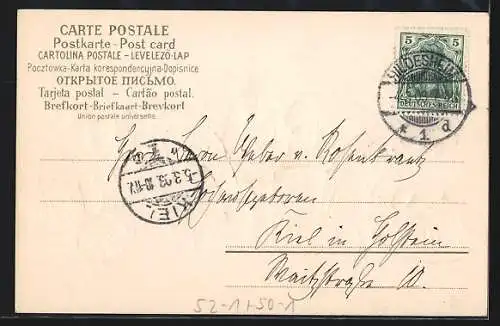 CARTE POSTALE
Postkarte - Post card
CARTOLINA POSTALE – LEVELEZŐ-LAP
Pocztowka-Karta korespondencyjna-Dopisnice
ОТКРЫТОЕ ПИСЬМО.
Tarjeta postal – Cartão postal.
Brefkort-Briefkaart-Brevkort
Union postale universelle.
5 5
DEUTSCHES REICH
HILDESHEIM
* 1 d
Baron Weber v. Rosenkrantz
Hochwohlgeboren
KIEL
Kiel in Holstein
Waitzstraße 10.
52-1+50-1